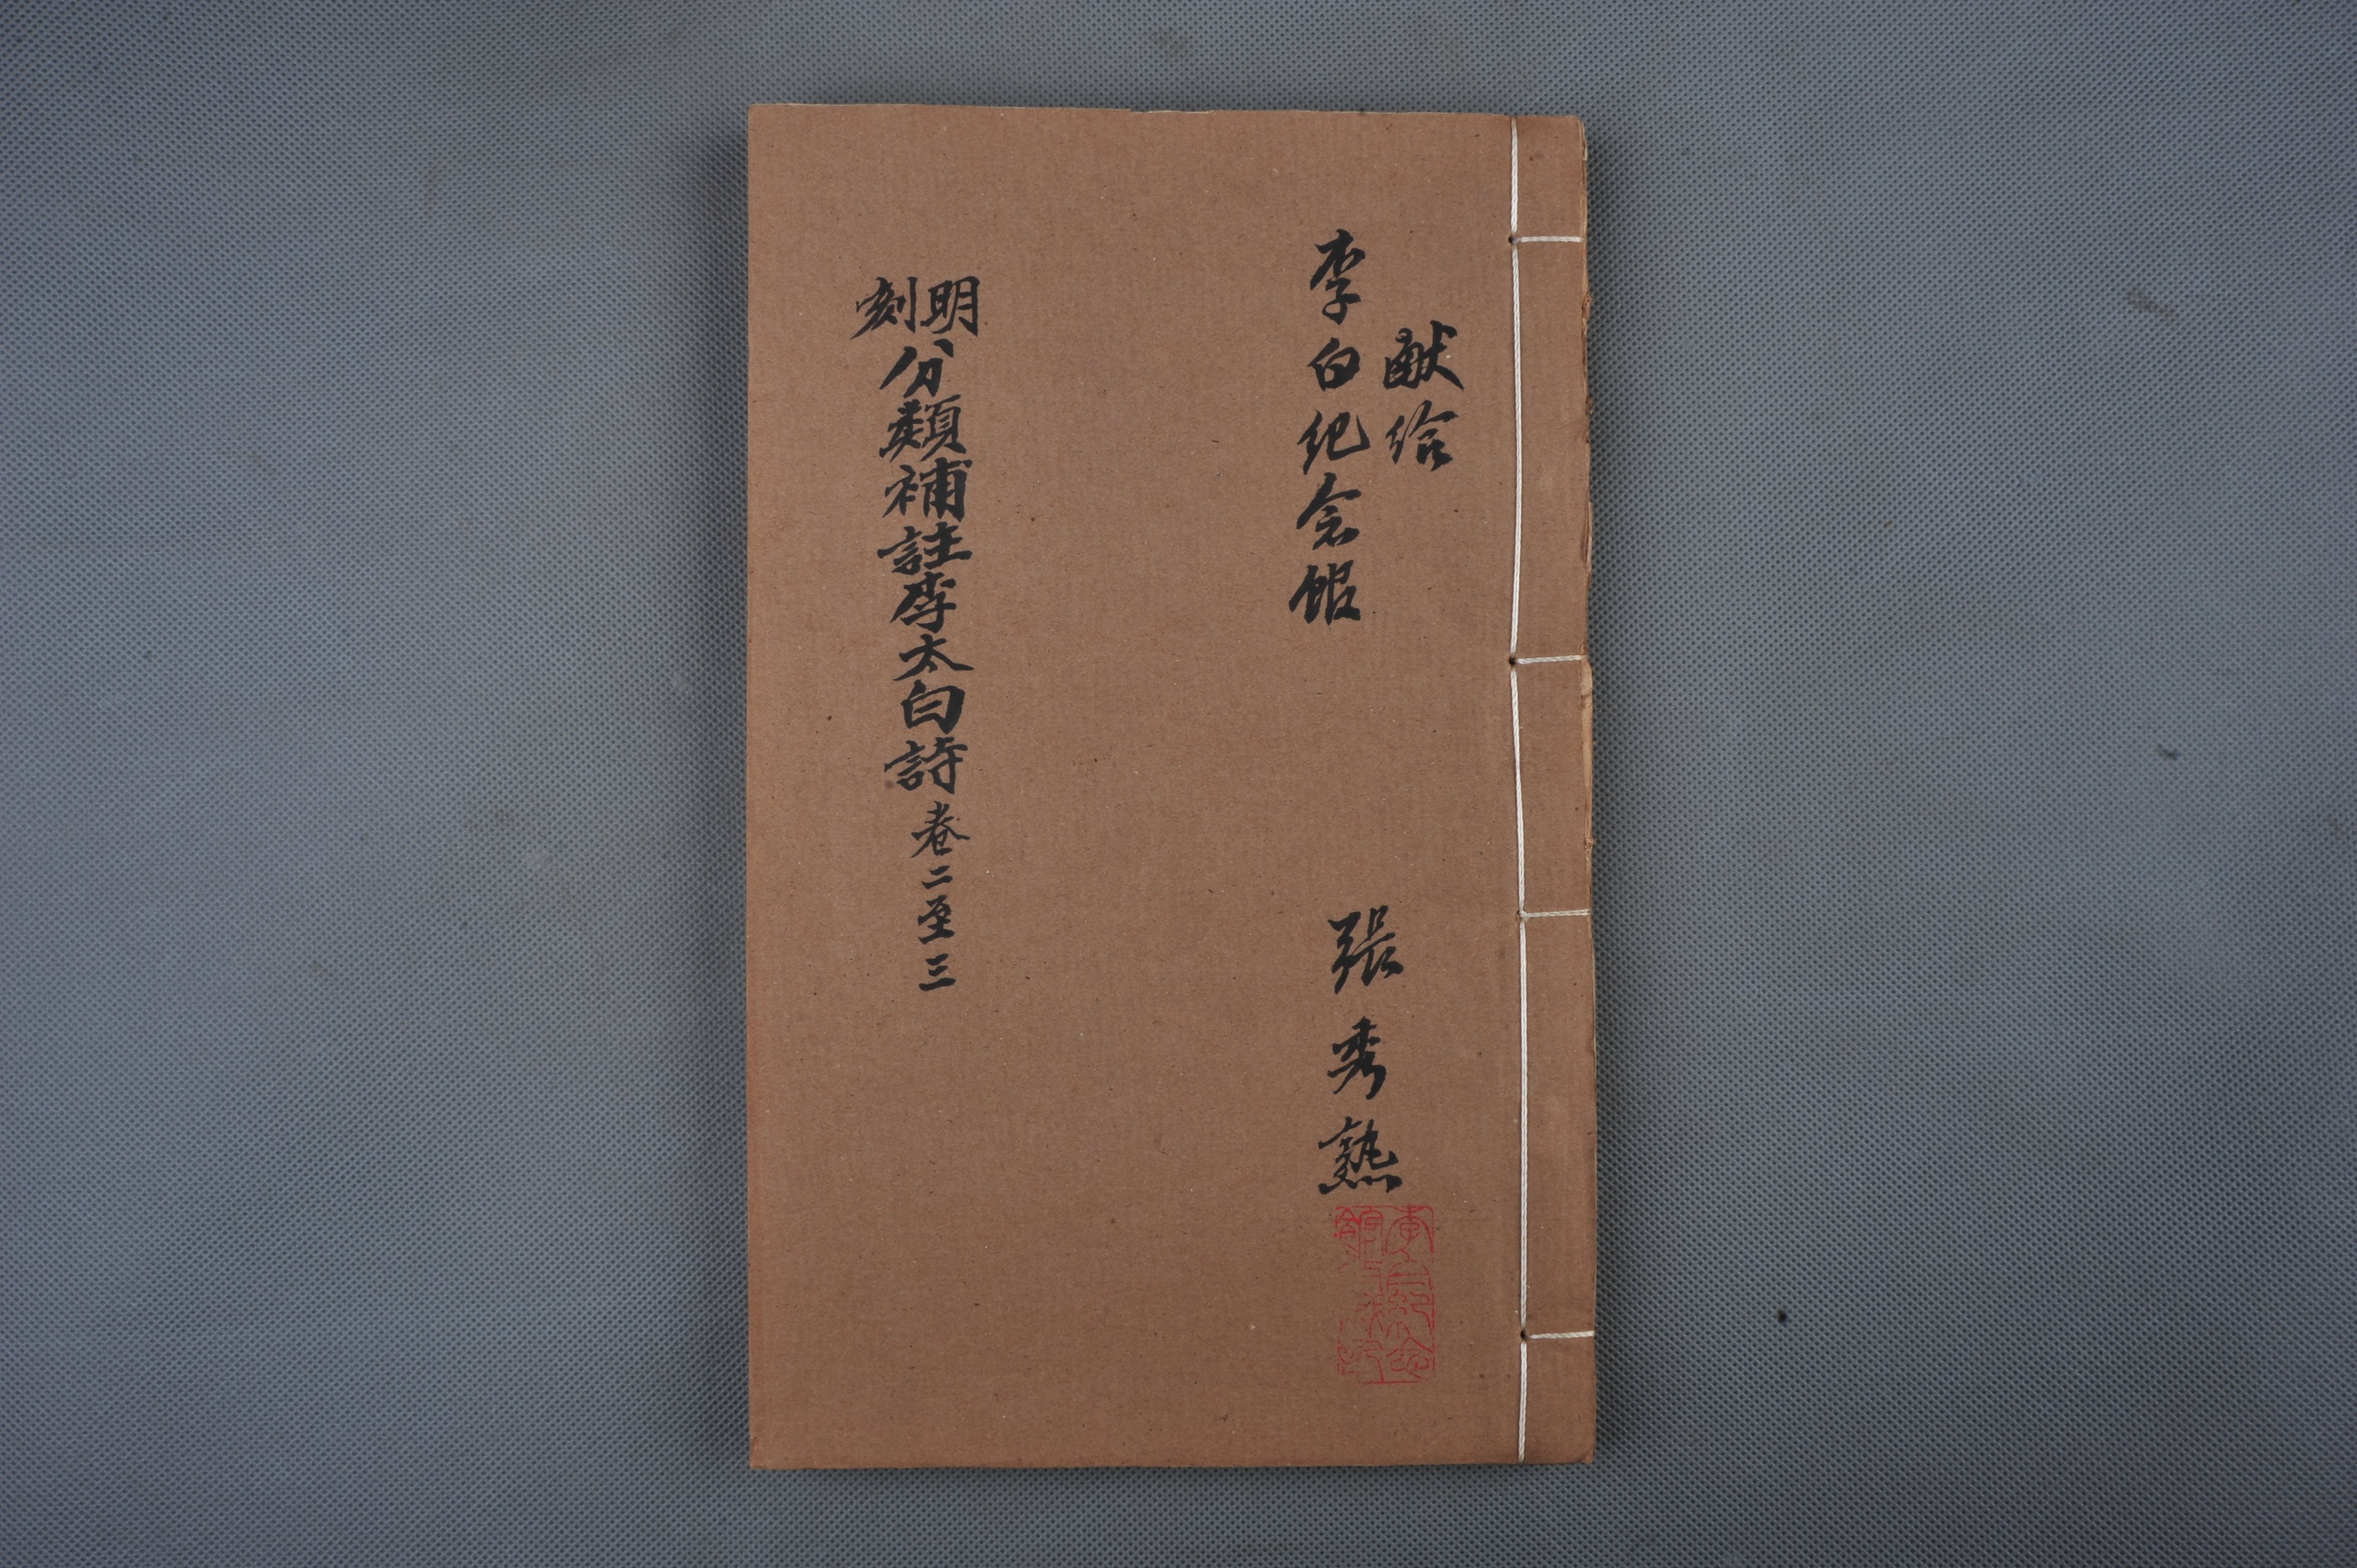 献给
李白纪念馆
張秀熟
明刻分類補註李太白詩卷二至三